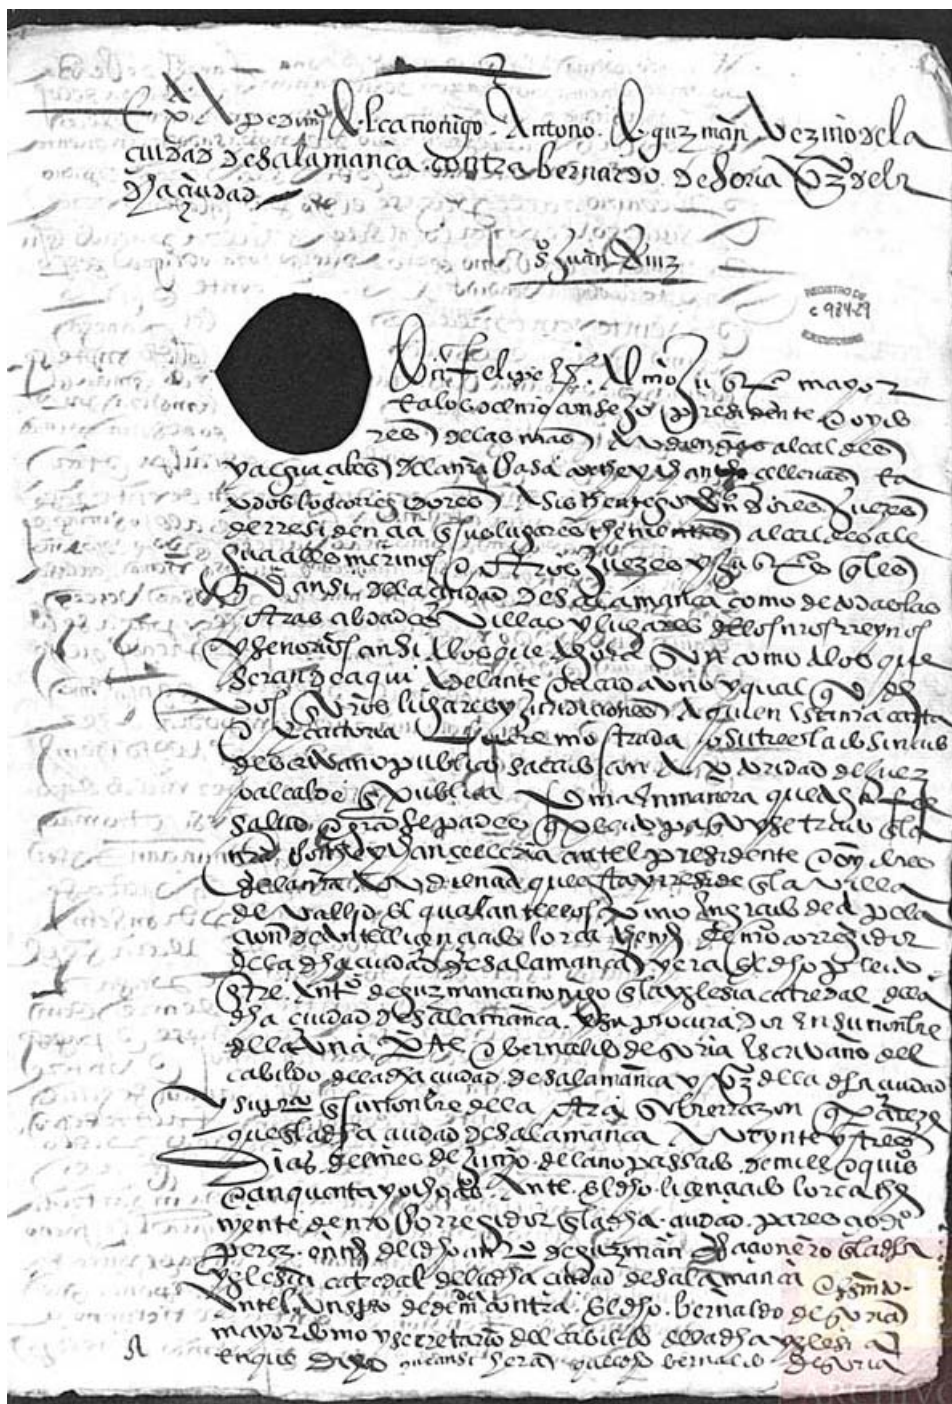 A pedimi.º del canonigo. Antonio. de guzman Vezino de la
ciudad de salamanca. contra bernardo. de soria vzº de la
dha ciudad
sº Juan Ruiz
REGISTRO DE
C 984-29
EJECUTORIAS
Don Felipe justª mayor
e a los del nro consejo presidente e oydo
res de las nras Audiençias alcaldes
y alguaziles de la nra casa corte y chancelleria e a
todos los corregidores Asistente gouernadores Juezes
de rresidencia e sus lugares thenientes alcaldes al
guaziles merinos e otros Juezes e justªs
ansi de la ciudad de salamanca como de todas las
otras cibdades Villas y lugares de los nros rreynos
y señorios ansi a los que agora son como a los que
seran de aqui adelante e a cada vno y qual quier de
vos en vros lugares y juridiciones A quien esta nra carta
executoria fuere mostrada o su treslado sinado
de escriuano publico sacado con autoridad de Juez
o alcalde en publica forma en manera que haga fee
salud e graçia sepades que pleito paso y se trato en la
nra corte y chancelleria ante el presidente e oydores
de la nra Audiencia que esta y reside en la Villa
de Vallid el qual ante ellos vino en grado de apela
cion de ante el licenciado lorca theniente de nro corregidor
de la dha ciudad de salamanca y era el dho pleito
entre Antº de guzman canonigo en la yglesia catredal de la
dha ciudad de salamanca. e su procurador en su nombre
de la vna parte e bernaldo de soria escriuano del
cabildo de la dha ciudad de salamanca y vzº de la dha ciudad
y su procurador en su nombre de la otra sobre rrazon que pareze
que en la dha ciudad de salamanca A veynte y tres
Dias. del mes de Junio. del año passado. de mill e quisº
e cinquenta y ocho años. Ante. el dho. licenciado lorca the
niente de nro Corregidor en la dha. ciudad. parescio diº
perez. en nonbre del dho antº de guzman Racionero en la dha
yglesia catredal de la dha ciudad de salamanca e presento.
Ante el Vn escrito de demᵈᵃ contra. el dho. bernaldo de soria
mayordomo y secretario del cabildo de la dha yglesia
en que Dixo que ansi hera que el dho bernaldo de soria